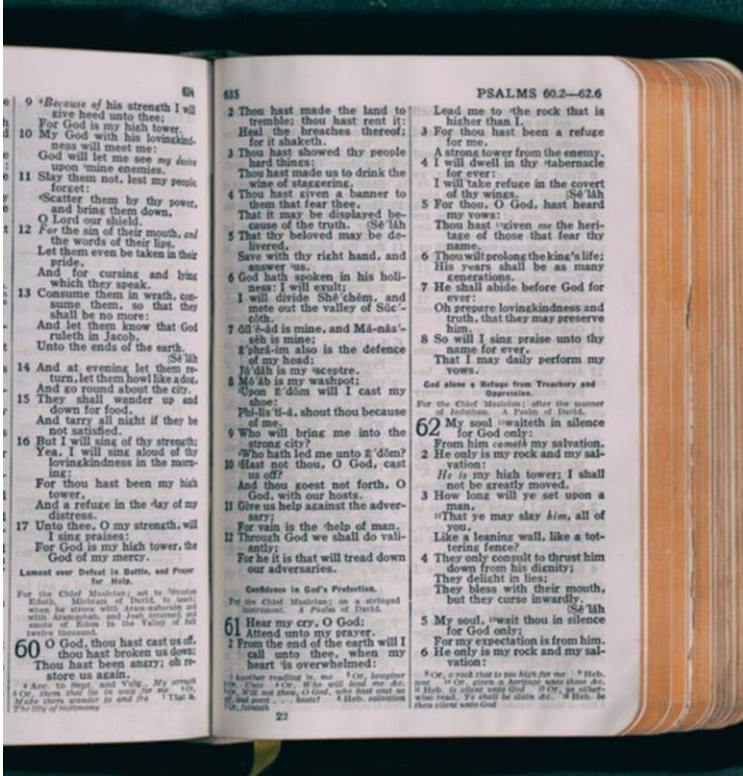 634
9 Because of his strength I will
give heed unto thee;
For God is my high tower.
10 My God with his lovingkind-
ness will meet me:
God will let me see my desire
upon mine enemies.
11 Slay them not, lest my people
forget:
Scatter them by thy power,
and bring them down,
O Lord our shield.
12 For the sin of their mouth, and
the words of their lips,
Let them even be taken in their
pride,
And for cursing and lying
which they speak.
13 Consume them in wrath, con-
sume them, so that they
shall be no more:
And let them know that God
ruleth in Jacob,
Unto the ends of the earth.
[Sē´lăh
14 And at evening let them re-
turn, let them howl like a dog,
And go round about the city.
15 They shall wander up and
down for food,
And tarry all night if they be
not satisfied.
16 But I will sing of thy strength;
Yea, I will sing aloud of thy
lovingkindness in the morn-
ing:
For thou hast been my high
tower,
And a refuge in the day of my
distress.
17 Unto thee, O my strength, will
I sing praises:
For God is my high tower, the
God of my mercy.
Lament over Defeat in Battle, and Prayer
for Help.
For the Chief Musician; set to
Eduth. Michtam of David, to teach;
when he strove with Aram-naharaim and
with Aram-zobah, and Joab returned, and
smote of Edom in the Valley of Salt
twelve thousand.
60 O God, thou hast cast us off,
thou hast broken us down;
Thou hast been angry; oh re-
store us again.
Acc. to Sept. and Vulg., My strength
Or, them shall lie in wait for me
Make them wander to and fro That is,
The lily of testimony
635
2 Thou hast made the land to
tremble; thou hast rent it:
Heal the breaches thereof;
for it shaketh.
3 Thou hast showed thy people
hard things:
Thou hast made us to drink the
wine of staggering.
4 Thou hast given a banner to
them that fear thee,
That it may be displayed be-
cause of the truth. [Sē´lăh
5 That thy beloved may be de-
livered,
Save with thy right hand, and
answer us.
6 God hath spoken in his holi-
ness: I will exult;
I will divide Shē´chĕm, and
mete out the valley of Sŭc´-
cŏth.
7 Gĭl´ĕ-ăd is mine, and Mā-năs´-
sĕh is mine;
Ē´phră-im also is the defence
of my head;
Jū´dăh is my sceptre.
8 Mō´ăb is my washpot;
Upon Ē´dŏm will I cast my
shoe:
Phĭ-lĭs´tĭ-ȧ, shout thou because
of me.
9 Who will bring me into the
strong city?
Who hath led me unto Ē´dŏm?
10 Hast not thou, O God, cast
us off?
And thou goest not forth, O
God, with our hosts.
11 Give us help against the adver-
sary;
For vain is the help of man.
12 Through God we shall do vali-
antly;
For he it is that will tread down
our adversaries.
Confidence in God's Protection.
For the Chief Musician; on a stringed
instrument. A Psalm of David.
61 Hear my cry, O God;
Attend unto my prayer.
2 From the end of the earth will I
call unto thee, when my
heart is overwhelmed:
Another reading is, me Or, lawgiver
Or, Unto Or, Who will lead me &c.
Or, Wilt not thou, O God, who hast cast us
off, and goest . . . hosts? Heb. salvation
Or, fainteth
22
PSALMS 60.2—62.6
Lead me to the rock that is
higher than I.
3 For thou hast been a refuge
for me,
A strong tower from the enemy.
4 I will dwell in thy tabernacle
for ever:
I will take refuge in the covert
of thy wings. [Sē´lăh
5 For thou, O God, hast heard
my vows:
Thou hast given me the heri-
tage of those that fear thy
name.
6 Thou wilt prolong the king's life;
His years shall be as many
generations.
7 He shall abide before God for
ever:
Oh prepare lovingkindness and
truth, that they may preserve
him.
8 So will I sing praise unto thy
name for ever,
That I may daily perform my
vows.
God alone a Refuge from Treachery and
Oppression.
For the Chief Musician; after the manner
of Jeduthun. A Psalm of David.
62 My soul waiteth in silence
for God only:
From him cometh my salvation.
2 He only is my rock and my sal-
vation:
He is my high tower; I shall
not be greatly moved.
3 How long will ye set upon a
man,
That ye may slay him, all of
you,
Like a leaning wall, like a tot-
tering fence?
4 They only consult to thrust him
down from his dignity;
They delight in lies;
They bless with their mouth,
but they curse inwardly.
[Sē´lăh
5 My soul, wait thou in silence
for God only;
For my expectation is from him.
6 He only is my rock and my sal-
vation:
Or, a rock that is too high for me Heb.
tent Or, given a heritage unto those &c.
Heb. is silent unto God Or, as other-
wise read, Ye shall be slain &c. Heb. be
thou silent unto God